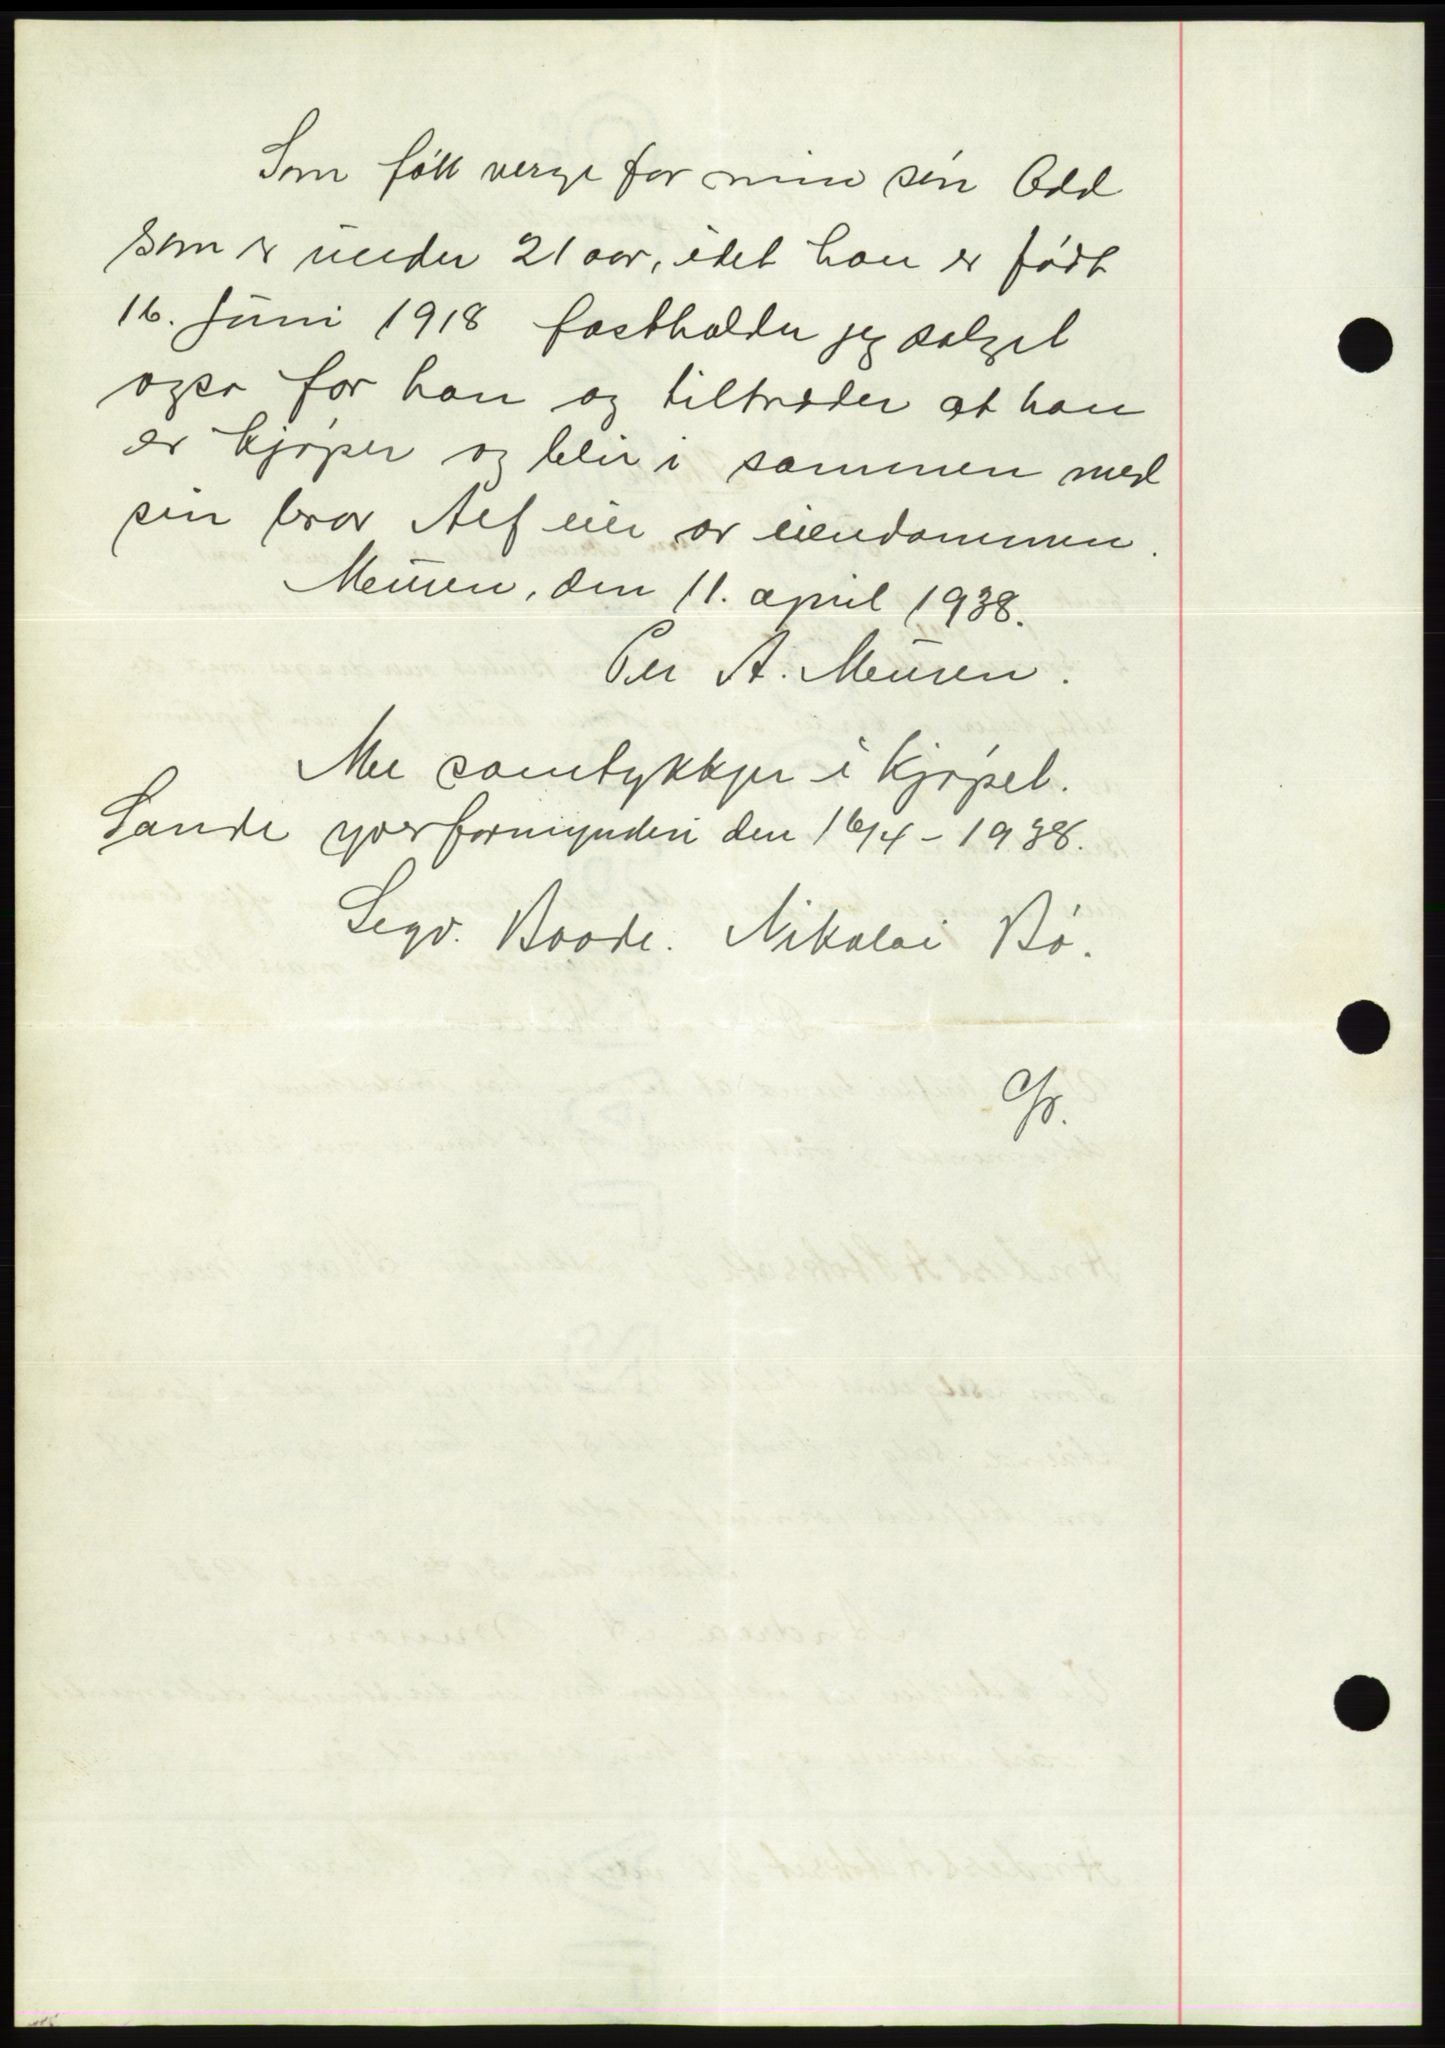 Som født verge for min søn Odd
som er under 21 aar, idet han er født
16. Juni 1918 fastholder jeg salget
ogsa for han og tiltræder at han
er kjøper og blir i sammen med
sin bror Alf eier av eiendommen.
Meusen, den 11. april 1938.
Per A. Meusen.
Me samtykkjer i kjøpet.
Sande yverformynderi den 16/4-1938.
Segv. Baade. Nikolai Bø.